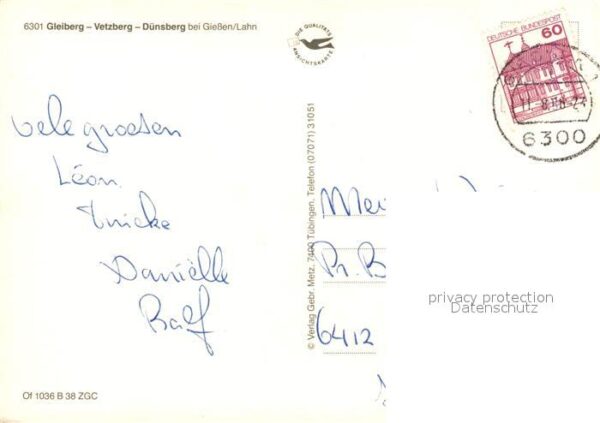 6301 Gleiberg – Vetzberg – Dünsberg bei Gießen/Lahn
DIE QUALITÄTS
ANSICHTSKARTE
DEUTSCHE BUNDESPOST
60
6300
vele groeten
Léon
Tnicke
Daniëlle
Ralf.
© Verlag Gebr. Metz, 7400 Tübingen, Telefon (07071) 31051
Mei
Pr. B
6412
privacy protection
Datenschutz
Of 1036 B 38 ZGC